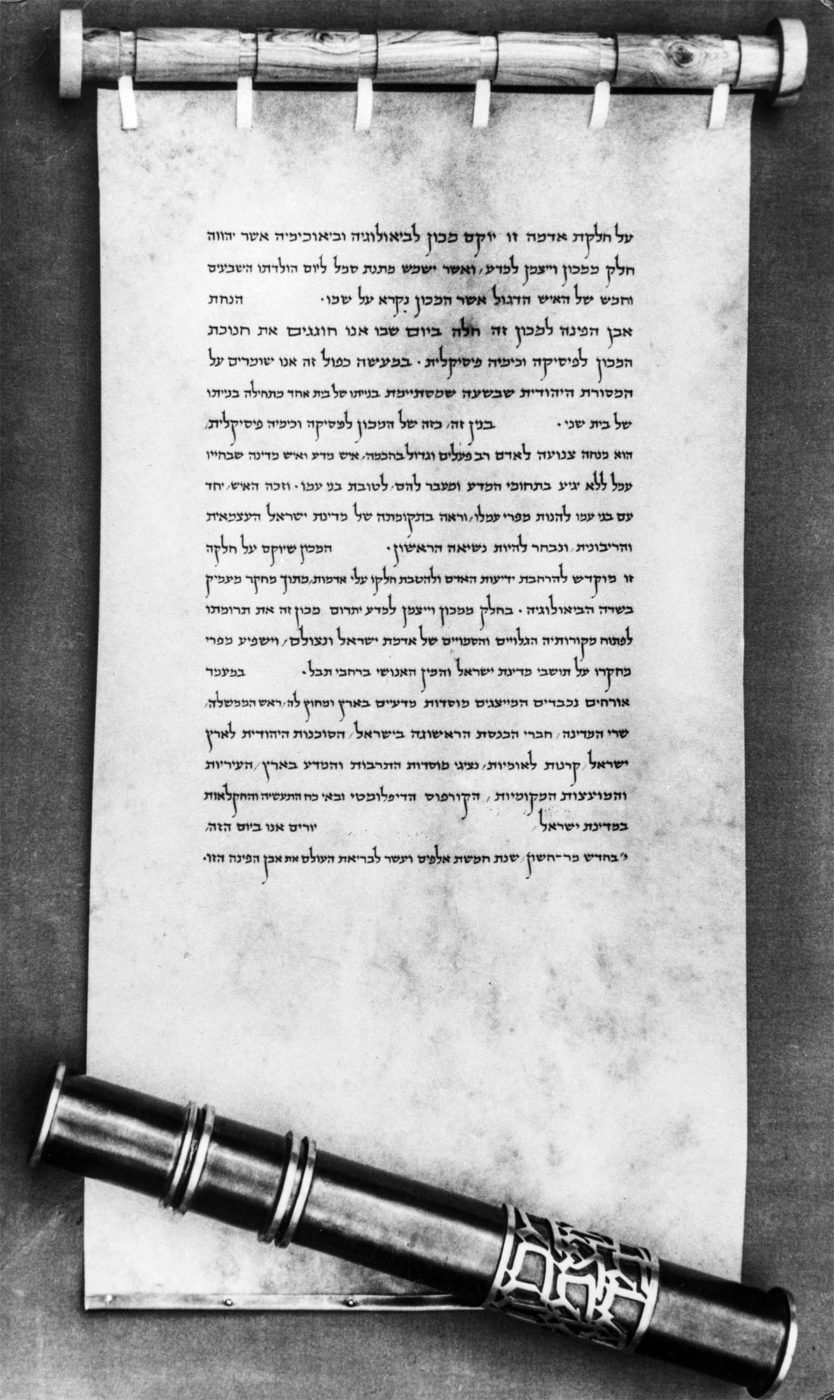 על חלקת אדמה זו יוקם מכון לביאולוגיה וביאוכימיה אשר יהווה
חלק ממכון וייצמן למדע, ואשר ישמש מתנת סמל ליום הולדתו השבעים
וחמש של האיש הדגול אשר המכון נקרא על שמו. הנחת
אבן הפינה למכון זה חלה ביום שבו אנו חוגגים את חנוכת
המכון לפיסיקה וכימיה פיסיקלית. במעשה כפול זה אנו שומרים על
המסורת היהודית שבשעה שמסתיימת בנייתו של בית אחד מתחילה בנייתו
של בית שני. בנין זה, כזה של המכון לפסיקה וכימיה פיסיקלית,
הוא מנחה צנועה לאדם רב פעלים וגדול בחכמה, איש מדע ואיש מדינה שבחייו
עמל ללא יגיע בתחומי המדע ומעבר להם, לטובת בני עמו. וזכה האיש, יחד
עם בני עמו להנות מפרי עמלו, וראה בתקומתה של מדינת ישראל העצמאית
והריבונית, ונבחר להיות נשיאה הראשון. המכון שיוקם על חלקה
זו מוקדש להרחבת ידיעות האדם ולהטבת חלקו עלי אדמות, מתוך מחקר מעמיק
בשדה הביאולוגיה. בחלק ממכון וייצמן למדע יתרום מכון זה את תרומתו
לפתוח מקורותיה הגלויים והסמויים של אדמת ישראל ונצולם, וישפיע מפרי
מחקרו על תושבי מדינת ישראל והמין האנושי ברחבי תבל. במעמד
אורחים נכבדים המייצגים מוסדות מדעיים בארץ ומחוץ לה, ראש הממשלה,
שרי המדינה, חברי הכנסת הראשונה בישראל, הסוכנות היהודית לארץ
ישראל, קרנות לאומיות, נציגי מוסדות התרבות והמדע בארץ, העיריות
והמועצות המקומיות, הקורפוס הדיפלומטי ובאי כח התעשיה והחקלאות
במדינת ישראל, יורים אנו ביום הזה,
י' בחדש מר-חשון, שנת חמשת אלפים ועשר לבריאת העולם את אבן הפינה הזו.